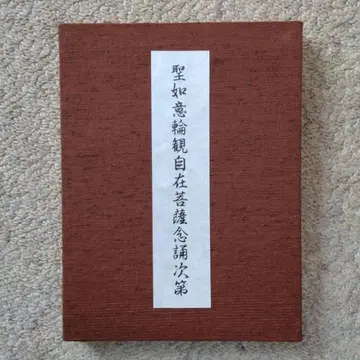 聖如意輪観自在菩薩念誦次第